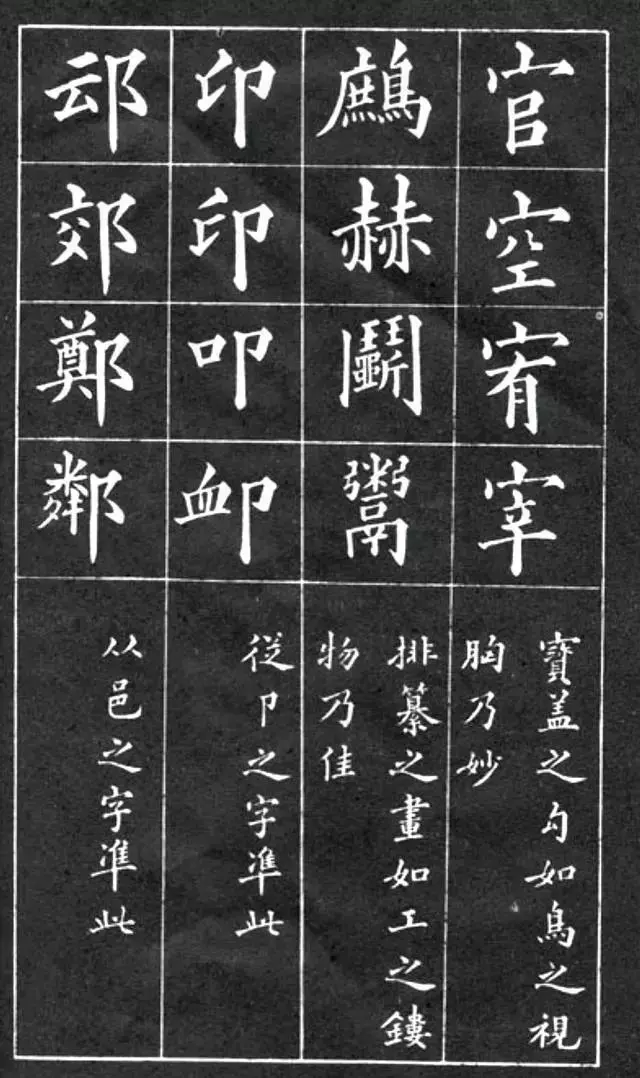 官空宥宰
寶盖之勾如鳥之視
胸乃妙
鷓赫鬭鬻
排纂之畫如工之鏤
物乃佳
印印叩卹
従卩之字凖此
䢵郊鄭鄰
从邑之字凖此